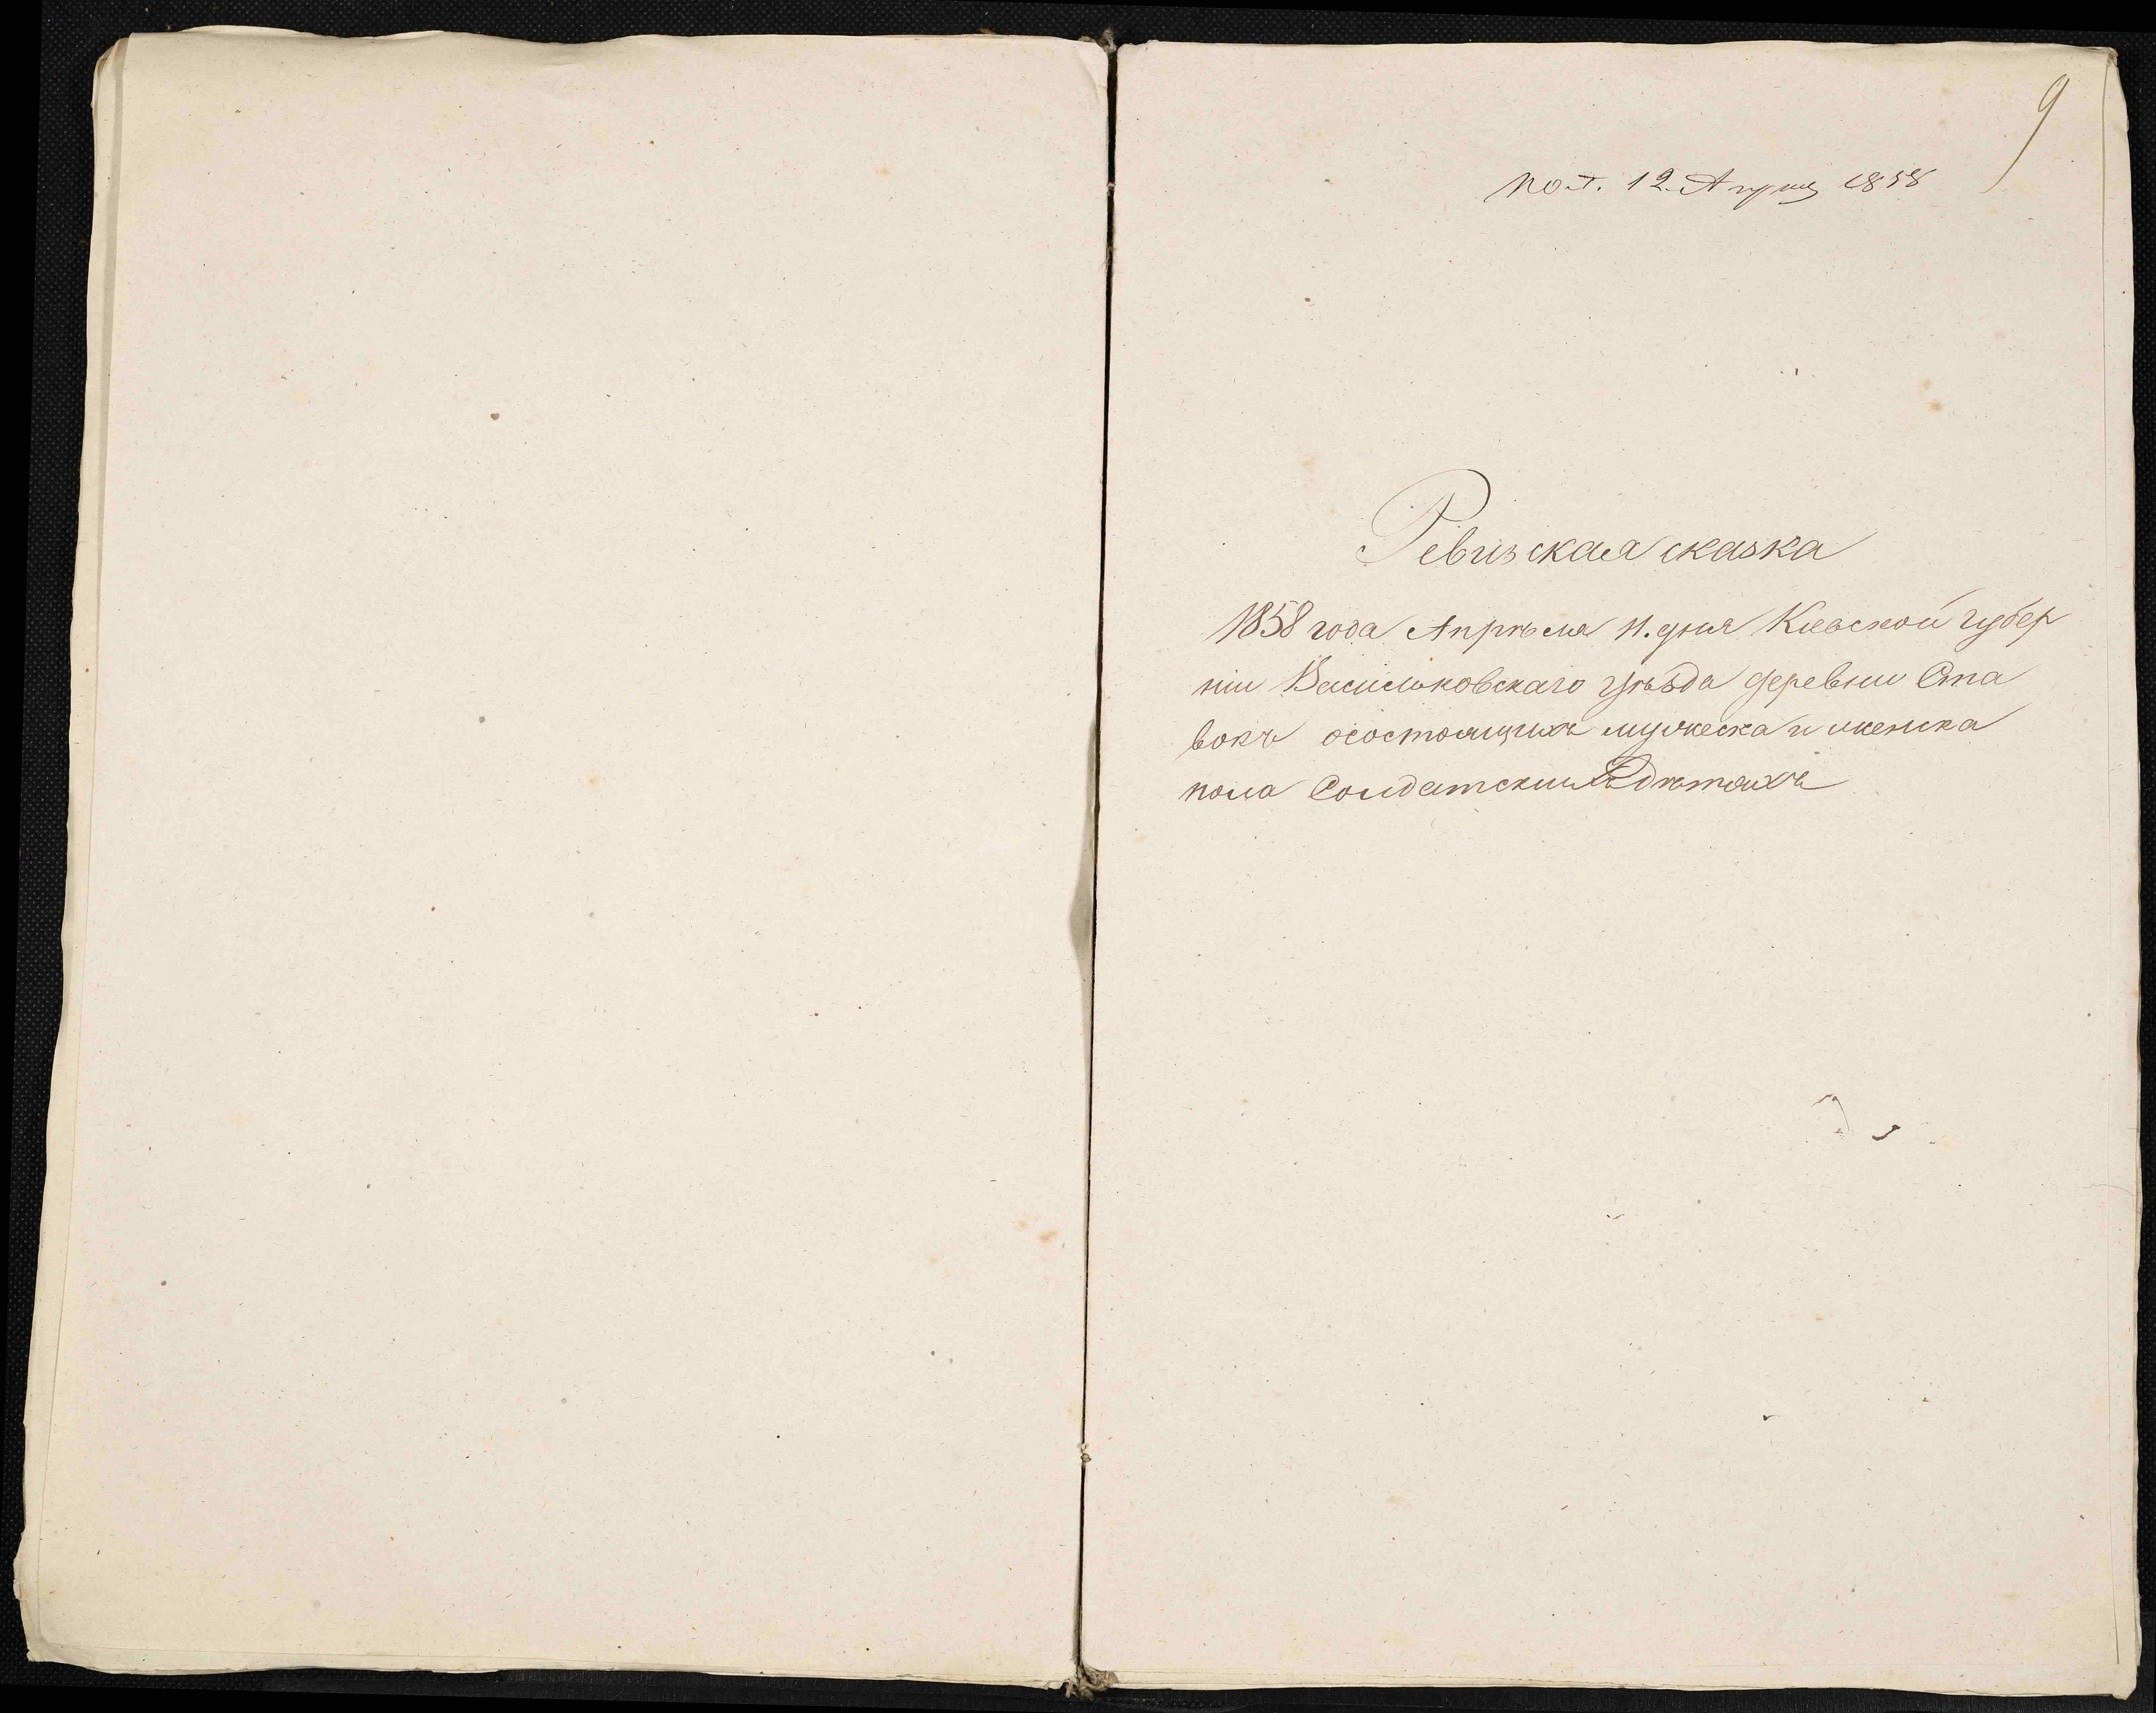 9
пол. 12 Апрел 1858
Ревизская сказка
1858 года Апрѣля 11. дня Кіевской губер
ніи Васильковскаго уѣзда деревни Ста
вокъ осостоящихъ мужеска и женска
пола Солдатскихъ дѣтяхъ